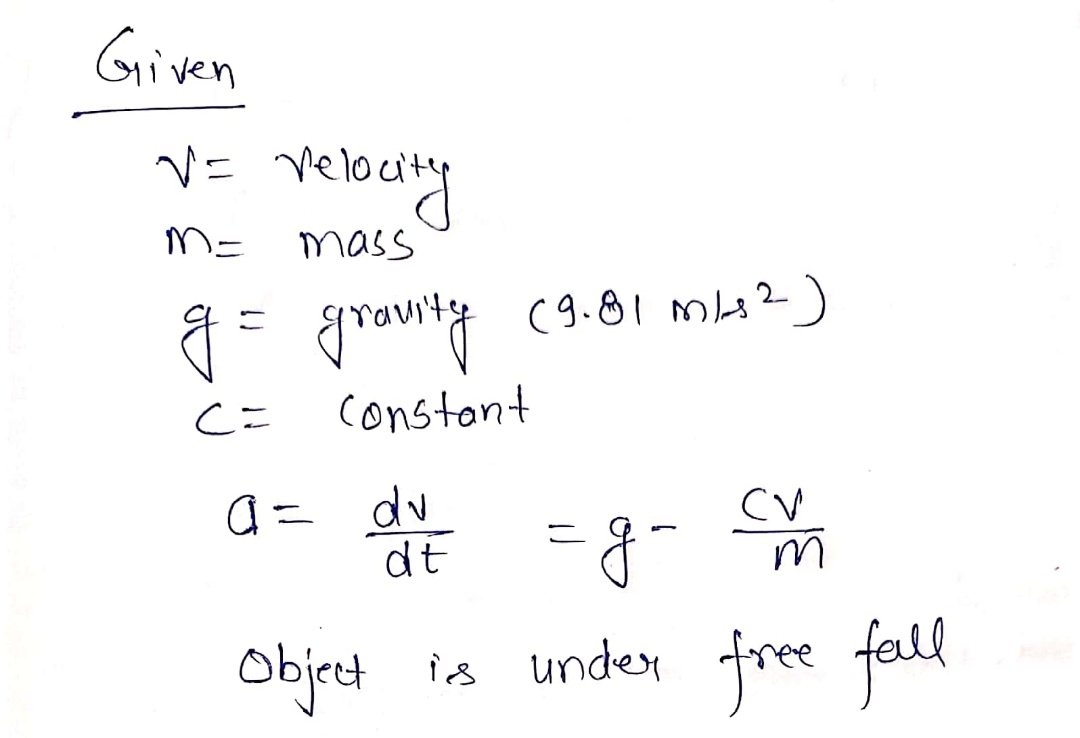 Given
v = velocity
m = mass
g = gravity (9.81 m/s²)
c = constant
a = dv/dt = g - cv/m
Object is under free fall